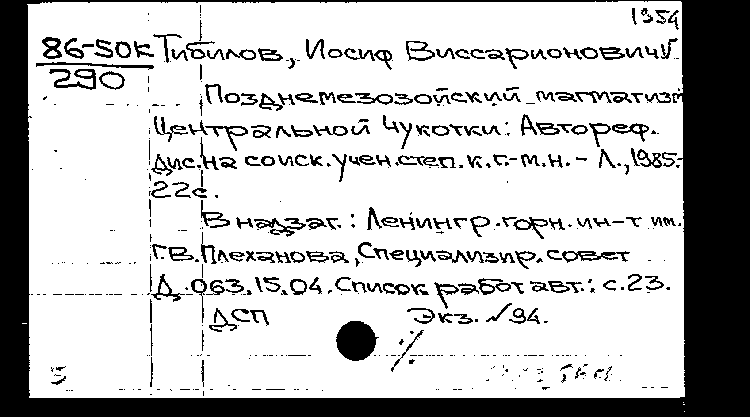 1354
86-50к Тибилов, Иосиф Виссарионович
290
Позднемезозойский магматизм
Центральной Чукотки: Автореф.
дис. на соиск. учен. степ. к. г.-м. н. - Л., 1985.-
22с.
В надзаг.: Ленингр. горн. ин-т им.
Г.В. Плеханова, Специализир. совет
Д. 063.15.04. Список работ авт.: с. 23.
ДСП Экз. № 94.
5